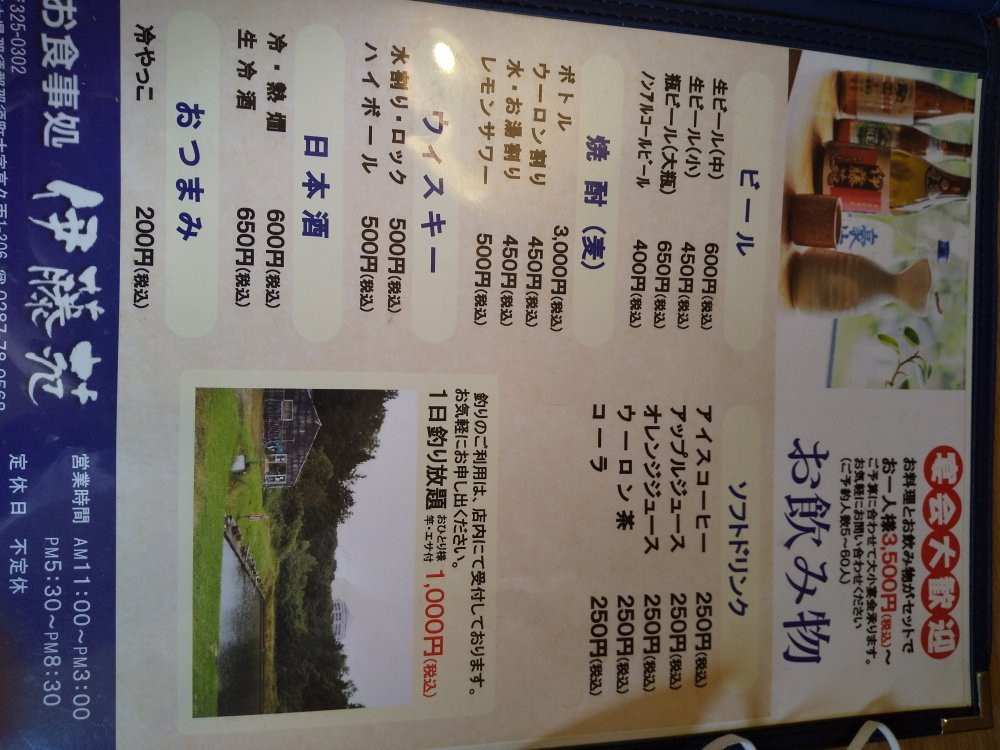 宴会大歓迎
お料理とお飲み物がセットで
お一人様3,500円(税込)〜
ご予算に合わせて大小宴会承ります。
お気軽にお問い合わせください
(ご予約人数5~60人)
お飲み物
ビール
生ビール(中) 600円(税込)
生ビール(小) 450円(税込)
瓶ビール(大瓶) 650円(税込)
ノンアルコールビール 400円(税込)
焼酎(麦)
ボトル 3,000円(税込)
ウーロン割り 450円(税込)
水・お湯割り 450円(税込)
レモンサワー 500円(税込)
ウィスキー
水割り・ロック 500円(税込)
ハイボール 500円(税込)
日本酒
冷・熱燗 600円(税込)
生冷酒 650円(税込)
おつまみ
冷やっこ 200円(税込)
ソフトドリンク
アイスコーヒー 250円(税込)
アップルジュース 250円(税込)
オレンジジュース 250円(税込)
ウーロン茶 250円(税込)
コーラ 250円(税込)
釣りのご利用は、店内にて受付しております。
お気軽にお申し出ください。
1日釣り放題 おひとり様 竿・エサ付 1,000円(税込)
お食事処 伊藤苑
営業時間 AM11:00〜PM3:00
PM5:30〜PM8:30
定休日 不定休
325-0302
那須町大字高久丙1-206 ☎0287-78-0568